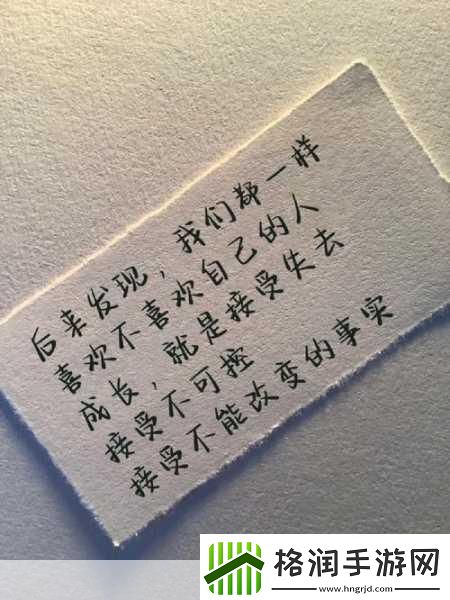 后来发现，我们都一样
喜欢不喜欢自己的人
成长，就是接受失去
接受不可控
接受不能改变的事实
格润手游网
www.hngrjd.com